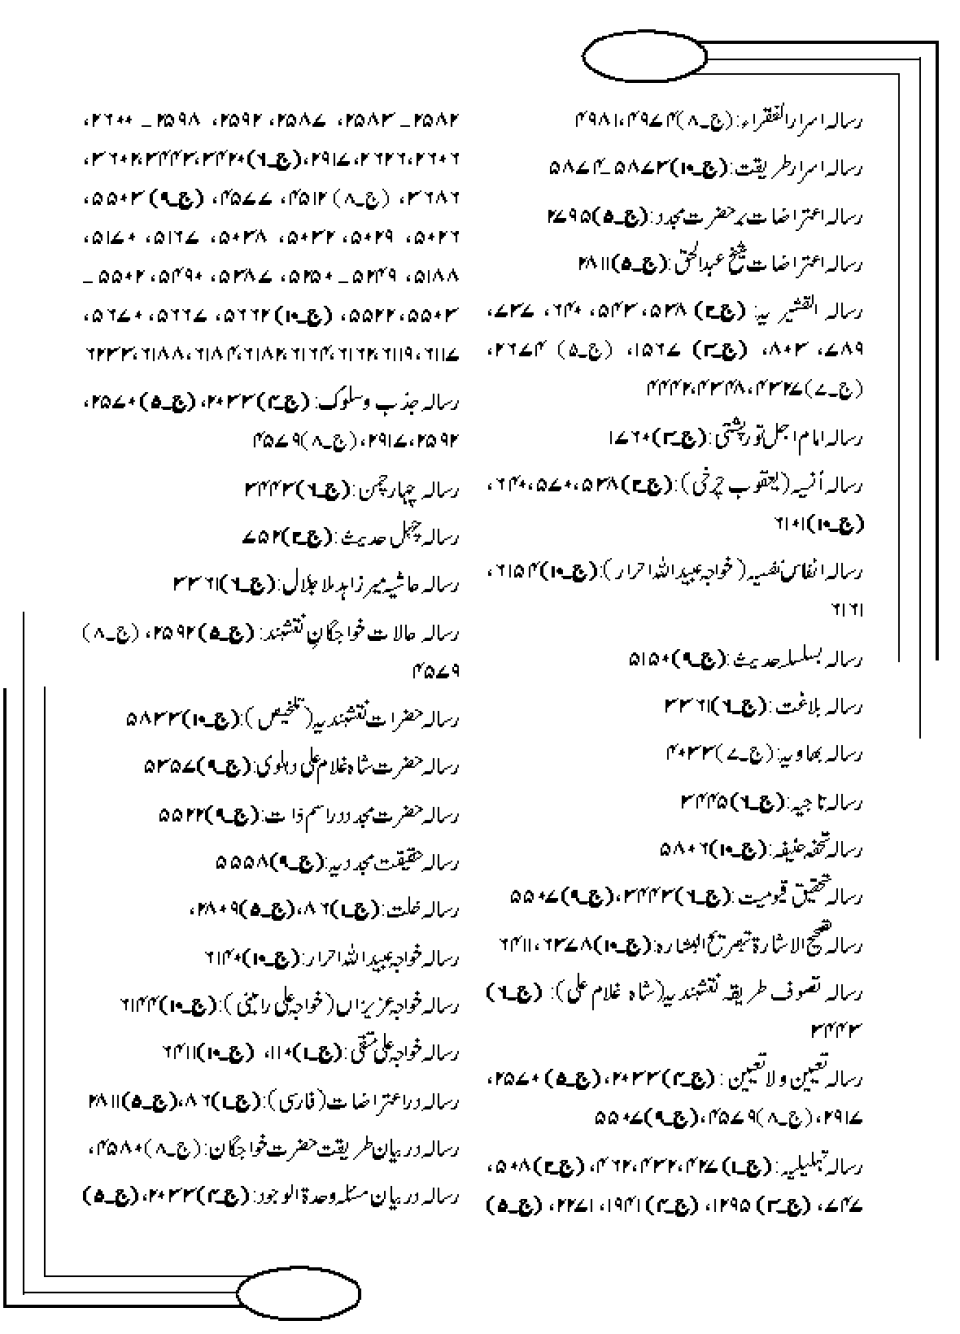 رسالہ اسرارالفقراء:(ج۔۸)۴۹۷۴،۴۹۸۱
رسالہ اسرارطریقت:(ج۔۱۰)۵۸۷۳۔۵۸۷۴
رسالہ اعتراضات بر حضرت مجدد:(ج۔۵)۲۷۹۵
رسالہ اعتراضات شیخ عبدالحق:(ج۔۵)۲۸۱۱
رسالہ القشیریہ: (ج۔۲) ۵۳۸، ۵۴۳، ۶۴۰، ۷۳۷،
۷۸۹، ۸۰۳، (ج۔۳) ۱۵۶۷، (ج۔۵) ۲۶۷۴،
(ج۔۷)۴۳۲۷،۴۳۴۸،۴۴۴۲
رسالہ امام اجمل تورپشتی:(ج۔۳)۱۷۶۰
رسالہ اُنسیہ(یعقوب چرخی):(ج۔۲)۵۳۸،۵۷۰،۶۴۰،
(ج۔۱۰)۶۱۰۱
رسالہ انفاس نفسیہ(خواجہ عبیداللہ احرار):(ج۔۱۰)۶۱۵۴،
۶۱۶۱
رسالہ بسلسلہ حدیث:(ج۔۹)۵۱۵۰
رسالہ بلاغت:(ج۔۶)۳۳۶۱
رسالہ بھاویہ:(ج۔۷)۴۰۳۳
رسالہ تاجیہ:(ج۔۶)۳۴۴۵
رسالہ تحفہ حنیفہ:(ج۔۱۰)۵۸۰۶
رسالہ تحقیق قیومیت:(ج۔۶)۳۴۴۳،(ج۔۹)۵۵۰۷
رسالہ تصحیح الاشارۃ تبصریح البشارہ:(ج۔۱۰)۶۳۷۸، ۶۴۱۱
رسالہ تصوف طریقہ نقشبندیہ(شاہ غلام علی): (ج۔۶)
۳۴۴۳
رسالہ تعیین ولا تعیین: (ج۔۴)۲۰۳۳، (ج۔۵) ۲۵۷۰،
۲۹۱۷، (ج۔۸)۴۵۷۹، (ج۔۹)۵۵۰۷
رسالہ تہلیلیہ:(ج۔۱)۴۲۷،۴۳۲،۴۶۲، (ج۔۲)۵۰۸،
۷۴۷، (ج۔۳)۱۲۹۵، (ج۔۴) ۱۹۴۱، ۲۲۷۱، (ج۔۵)
۲۵۸۲۔ ۲۵۸۳، ۲۵۸۷، ۲۵۹۲، ۲۵۹۸ ۔ ۲۶۰۰،
۲۶۰۶،۲۶۲۶، ۲۹۱۷، (ج۔۶) ۳۴۲۰، ۳۴۴۳، ۳۶۰۲،
۳۶۸۶، (ج۔۸) ۴۵۱۲، ۴۵۷۷، (ج۔۹) ۵۰۰۳،
۵۰۲۶، ۵۰۲۹، ۵۰۳۲، ۵۰۳۸، ۵۱۶۷، ۵۱۷۰،
۵۱۸۸، ۵۲۴۹ ۔ ۵۲۵۰، ۵۳۸۷، ۵۴۹۰، ۵۵۰۲ ۔
۵۵۰۳، ۵۵۲۲، (ج۔۱۰) ۵۶۶۲، ۵۶۶۷، ۵۶۷۰،
۶۱۱۷، ۶۱۱۹، ۶۱۶۲، ۶۱۶۴، ۶۱۸۲، ۶۱۸۴، ۶۱۸۸، ۶۲۳۳
رسالہ جذب وسلوک: (ج۔۴)۲۰۳۳، (ج۔۵) ۲۵۷۰،
۲۵۹۲، ۲۹۱۷، (ج۔۸)۴۵۷۹
رسالہ چہار چمن:(ج۔۶)۳۴۴۳
رسالہ چہل حدیث:(ج۔۲)۷۵۲
رسالہ حاشیہ میر زاہد ملا جلال:(ج۔۶)۳۳۶۱
رسالہ حالات خواجگانِ نقشبند: (ج۔۵) ۲۵۹۲، (ج۔۸)
۴۵۷۹
رسالہ حضرات نقشبندیہ(تلخیص):(ج۔۱۰)۵۸۳۳
رسالہ حضرت شاہ غلام علی دہلوی:(ج۔۹)۵۳۵۷
رسالہ حضرت مجدد دراسم ذات:(ج۔۹)۵۵۲۲
رسالہ حقیقت مجددیہ:(ج۔۹)۵۵۵۸
رسالہ خلت:(ج۔۱)۸۶، (ج۔۵)۲۸۰۹،
رسالہ خواجہ عبیداللہ احرار:(ج۔۱۰)۶۱۴۰
رسالہ خواجہ عزیزاں(خواجہ علی رامیتنی):(ج۔۱۰)۶۱۴۴
رسالہ خواجہ علی متقی:(ج۔۱)۱۱۰، (ج۔۱۰)۶۴۱۱
رسالہ در اعتراضات(فارسی):(ج۔۱)۸۶، (ج۔۵)۲۸۱۱
رسالہ در بیان طریقت حضرت خواجگان:(ج۔۸)۴۵۸۰،
رسالہ در بیان مسئلہ وحدۃ الوجود:(ج۔۴)۲۰۳۳، (ج۔۵)